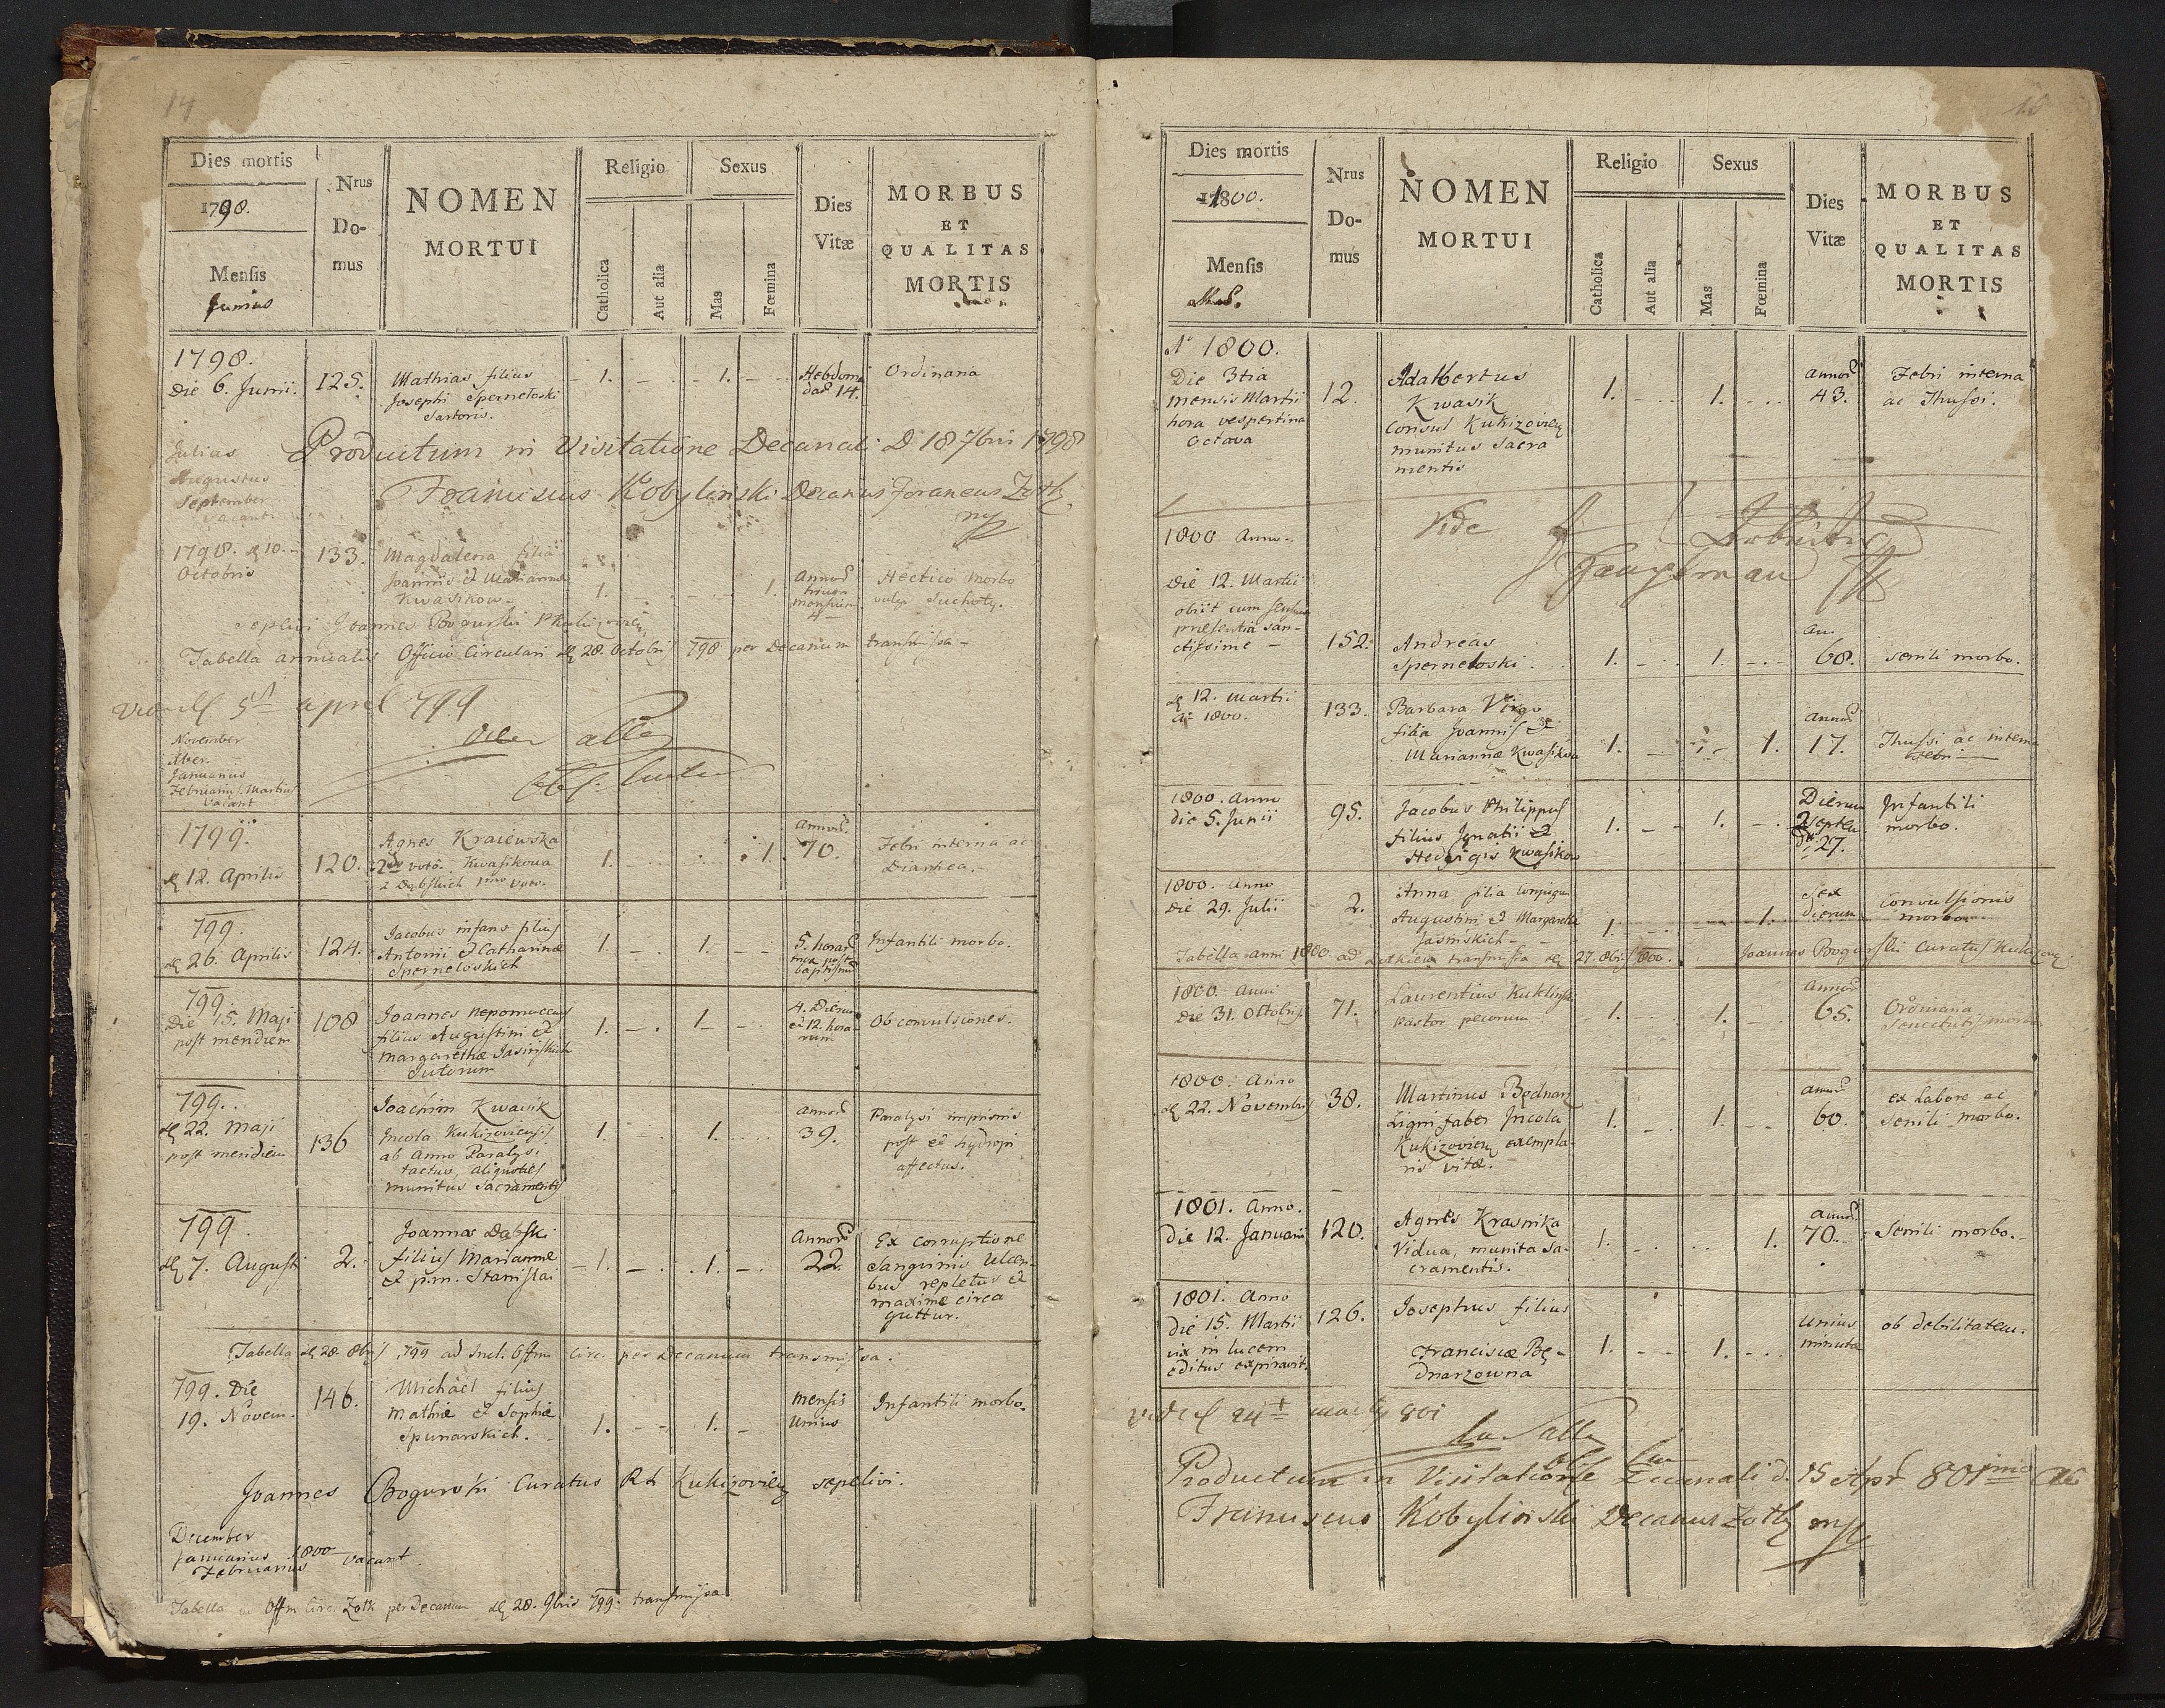 14
Dies mortis
1798.
Mensis
Junius
Nrus
Do-
mus
NOMEN
MORTUI
Religio
Catholica
Aut alia
Sexus
Mas
Fœmina
Dies
Vitæ
MORBUS
ET
QUALITAS
MORTIS
1798.
Die 6. Junii. 125. Mathias filius 1. 1. Hebdoma Ordinaria
Josephi Sperneloski dad 14.
Sartoris.
Julius
Productum in Visitatione Decanali D 18 7bris 1798
Augustus
September
vacant
Franciscus Kobylinski Decanus Foraneus Zolk
mp
1798. d 10.
Octobris
133. Magdalena filia
Joannis et Marianna
Kwasikow 1. 1. Annorũ
trium
mensium
4
Hectico morbo
vulgo Suchoty.
sepelivi Joannes Bogurski
Tabella annualis Officio Circulari d 28. Octobris 798 per Decanum transmissa
5 aprel 799
November
Xber.
Januarius
Februarius, Martius
vacant
1799.
d 12. Aprilis
120. Agnes Kraiewska
2do voto. Kwasikowa
z Dąbskich 1mo voto.
1. 1. Annorũ
70.
Febri interna ac
Diarrhea.
799.
d 26. Aprilis 124. Jacobus infans filius
Antonii et Catharinæ
Sperneloskich
1. 1. 5. horarũ
post
baptismũ
Infantili morbo.
799
Die 15. Maji
post meridiem
108 Joannes Nepomucenus
filius Augustini et
Margarethæ Jasinskich
Sutorum
1. 1. 4. Dierum
et 12. hora-
rum
Ob convulsiones.
799.
d 22. Maji
post meridiem
136 Joachim Kwasik
Incola Kukizoviensis
ab Anno Paralysi
tactus, aliquoties
munitus Sacramentis
1. 1. Annorũ
39.
Paralysi imprimis
post et hydropi
affectus.
799.
d 7. Augusti 2. Joannes Dąbski
filius Mariannæ
et p.m. Stanislai
1. 1. Annorũ
22.
Ex corruptione
Sanguinis Ulceri-
bus repletus et
maxime circa
guttur.
Tabella d 28. 8bris 799 ad Incl. Offm Circ. per Decanum transmissa.
799. Die
19. Novem.
146. Michael filius
Mathiæ et Sophiæ
Spunarskich.
1. 1. mensis
Unius
Infantili morbo.
Joannes Bogurski Curatus RL Kukizovien sepelivi.
December
Januarius 1800
Februarius vacant.
Tabella Offm Circ. Zolk per Decanum d 28. 9bris 799. transmissa
Dies mortis
1800.
Mensis
Nrus
Do-
mus
NOMEN
MORTUI
Religio
Catholica
Aut alia
Sexus
Mas
Fœmina
Dies
Vitæ
MORBUS
ET
QUALITAS
MORTIS
Aº 1800.
Die 3tia
mensis Martii
hora vespertina
Octava
12. Adalbertus
Kwasik
Consul Kukizovien
munitus Sacra
mentis
1. 1. annorũ
43.
Febri interna
ac Thussi.
Vide
1800 Anno
Die 12. Martii
obiit cum
præsentia san-
ctissime
152. Andreas
Spernetoski.
1. 1. an.
68. senili morbo.
d 12. martii
Aº 1800.
133. Barbara Virgo
filia Joannis et
Mariannæ Kwasikow
1. 1. annorũ
17. Thussi ac interna
febri
1800. Anno
die 5. Junii
95. Jacobus Philippus
filius Ignatii et
Hedvigis Kwasikow
1. 1. Dierum
27.
Infantili
morbo.
1800. Anno
Die 29. Julii
2. Anna filia
Augustini et Margarethæ
Jasinskich
1. 1. Sex
dierum
Convulsionis
morbo.
Tabella anni 1800 ad Zolkiew transmissa d 27. 8bris 800. Joannes Bogurski Curatus Kukizov
1800. Anni
Die 31. Octobris
71. Laurentius Kuklinski
Pastor pecorum
1. 1. annorũ
65. Ordinaria
Senectutis morbo
1800. Anno
d 22. Novembris 38. Martinus Bednarz
Ligni faber Incola
Kukizovien exempla-
ris vitæ.
1. 1. annorũ
60. ex Labore ac
senili morbo.
1801. Anno.
Die 12. Januarii 120. Agnes Krasnika
Vidua, munita Sa-
cramentis.
1. 1. annorũ
70. Senili morbo.
1801. Anno
Die 15. Martii
vix in lucem
editus expiravit.
126. Josephus filius
Franciscæ Be-
dnarzowna
1. 1. Unius
minuta
ob debilitatem.
24 801
Productum in Visitatione Decanali d. 15 Apr 801
Franciscus Kobylinski Decanus Zolk mp